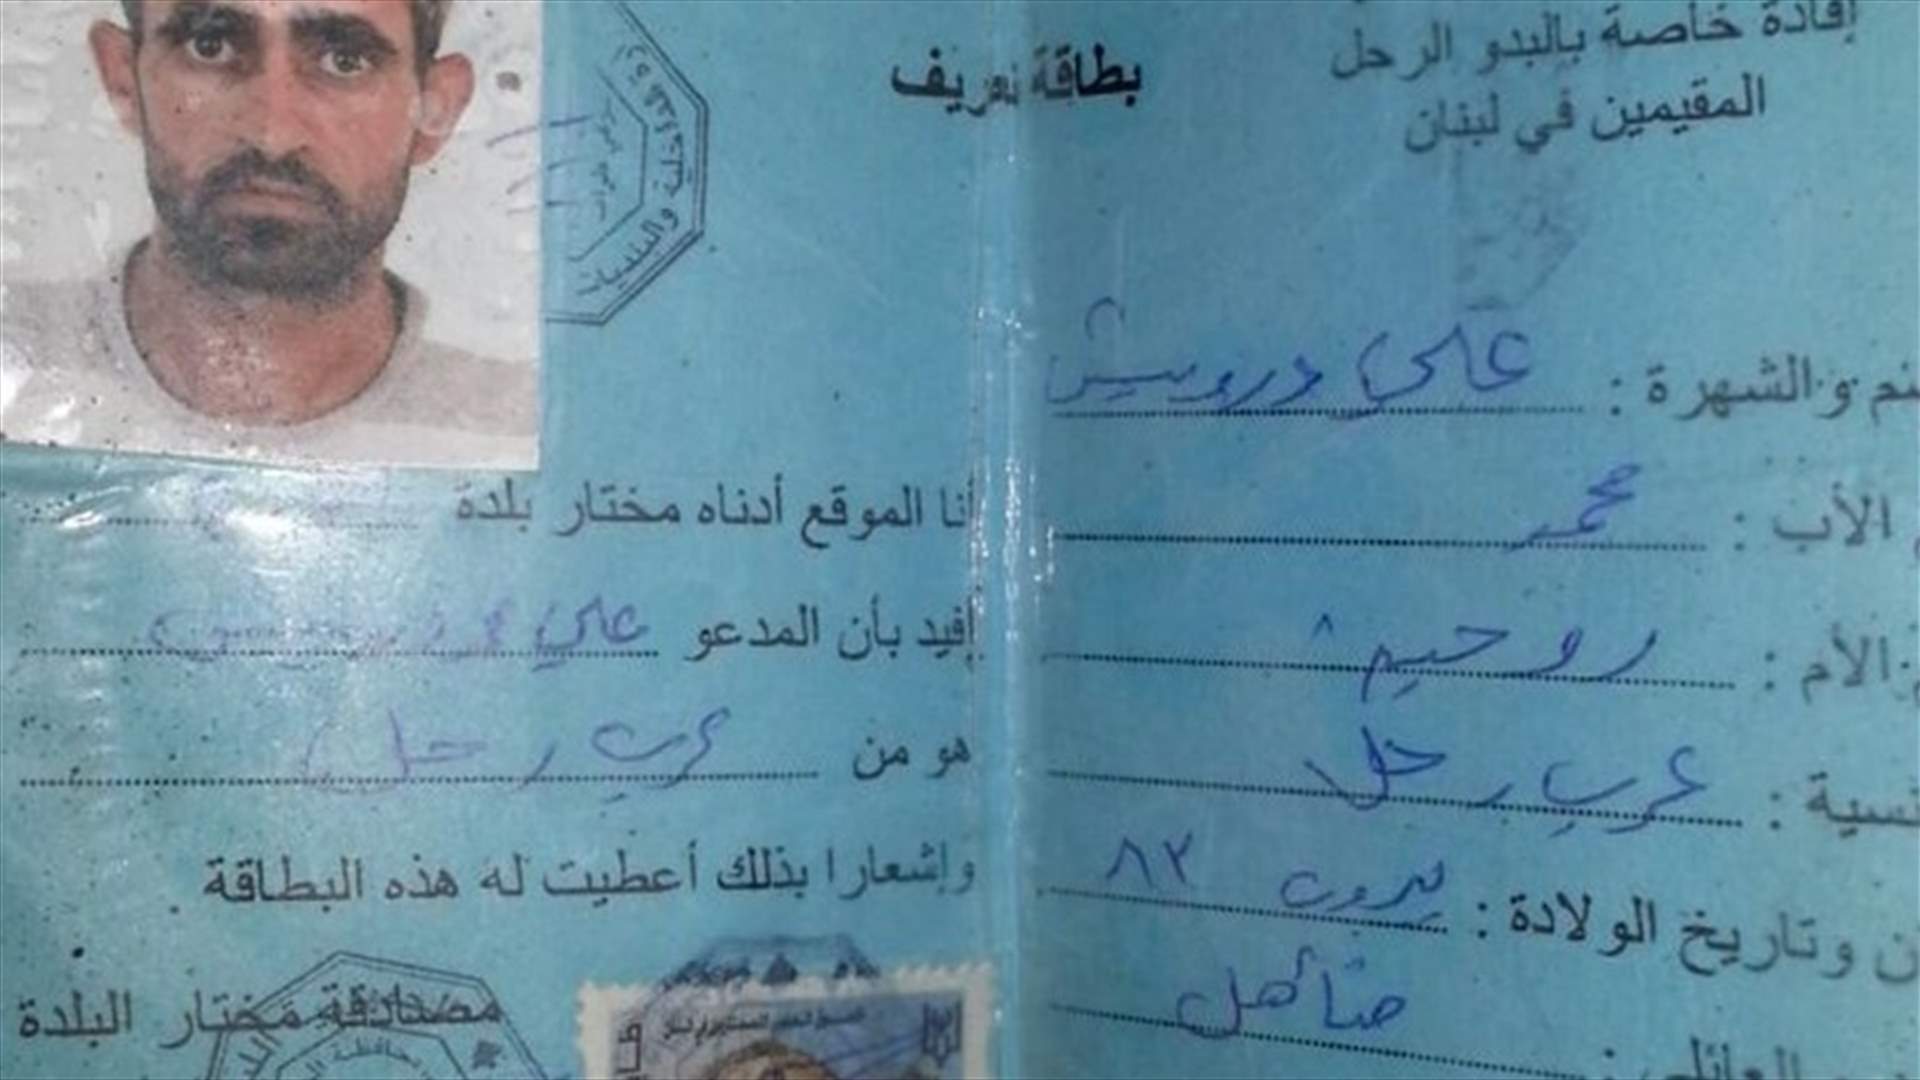 إفادة خاصة بالبدو الرحل
المقيمين في لبنان
بطاقة تعريف
والشهرة : علي درويش
الأب : محمد
الأم : روحية
عرب رحل
وتاريخ الولادة : بيروت ٨٣
متأهل
أنا الموقع أدناه مختار بلدة
إفيد بأن المدعو علي
هو من عرب رحل
وإشعارا بذلك أعطيت له هذه البطاقة .
مصادقة مختار البلدة
والبلديات